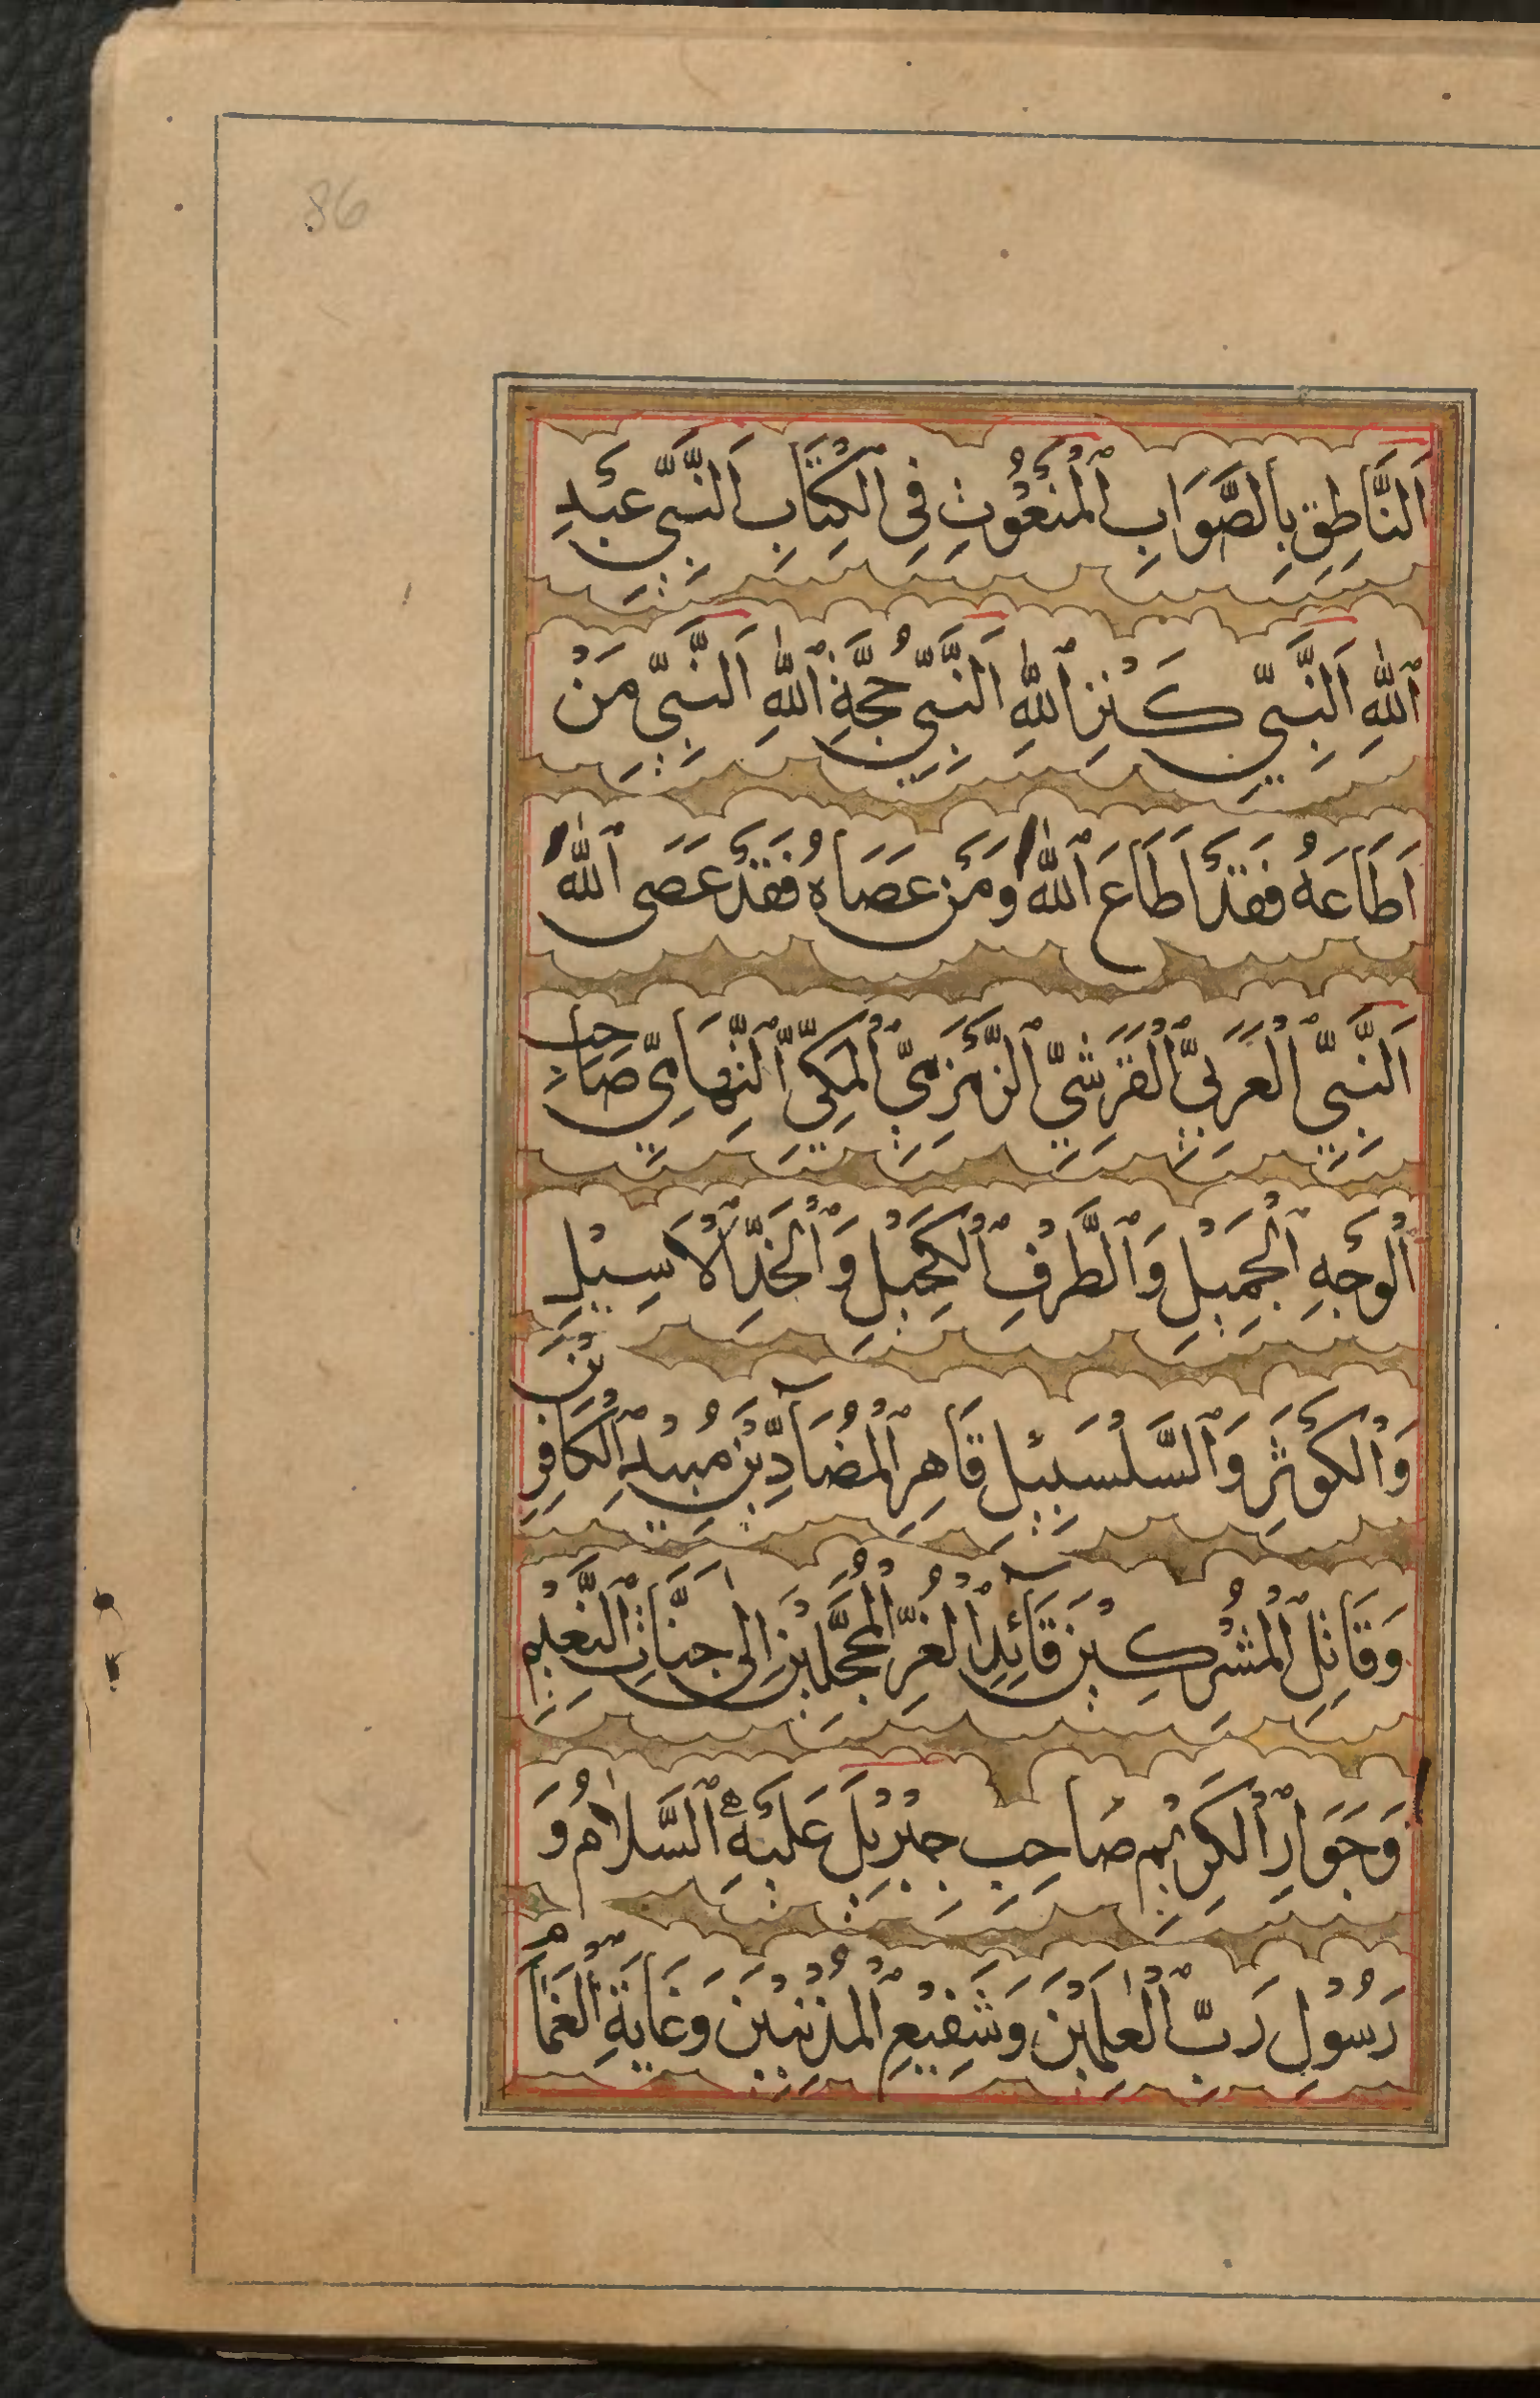 86
اَلنَّاطِقِ بِالصَّوَابِ الْمَنْعُوْتِ فِى الْكِتَابِ اَلنَّبِىِّ عَبْدِ
اللّٰهِ اَلنَّبِىِّ كَنْزِ اللّٰهِ اَلنَّبِىِّ حُجَّةِ اللّٰهِ اَلنَّبِىِّ مَنْ
اَطَاعَهُ فَقَدْ اَطَاعَ اللّٰهَ وَمَنْ عَصَاهُ فَقَدْ عَصَى اللّٰهَ
اَلنَّبِىِّ الْعَرَبِىِّ الْقُرَشِىِّ الزَّمْزَمِىِّ الْمَكِّىِّ التِّهَامِىِّ صَاحِبِ
الْوَجْهِ الْجَمِيْلِ وَالطَّرْفِ الْكَحِيْلِ وَالْخَدِّ الْاَسِيْلِ
وَالْكَوْثَرِ وَالسَّلْسَبِيْلِ قَاهِرِ الْمُضَآدِّيْنَ مُبِيْدِ الْكَافِرِيْنَ
وَقَاتِلِ الْمُشْرِكِيْنَ قَآئِدِ الْغُرِّ الْمُحَجَّلِيْنَ اِلٰى جَنَّاتِ النَّعِيْمِ
وَجَوَارِ الْكَرِيْمِ صَاحِبِ جِبْرِيْلَ عَلَيْهِ السَّلَامُ وَ
رَسُوْلِ رَبِّ الْعٰلَمِيْنَ وَشَفِيْعِ الْمُذْنِبِيْنَ وَغَايَةِ الْغَمَامِ